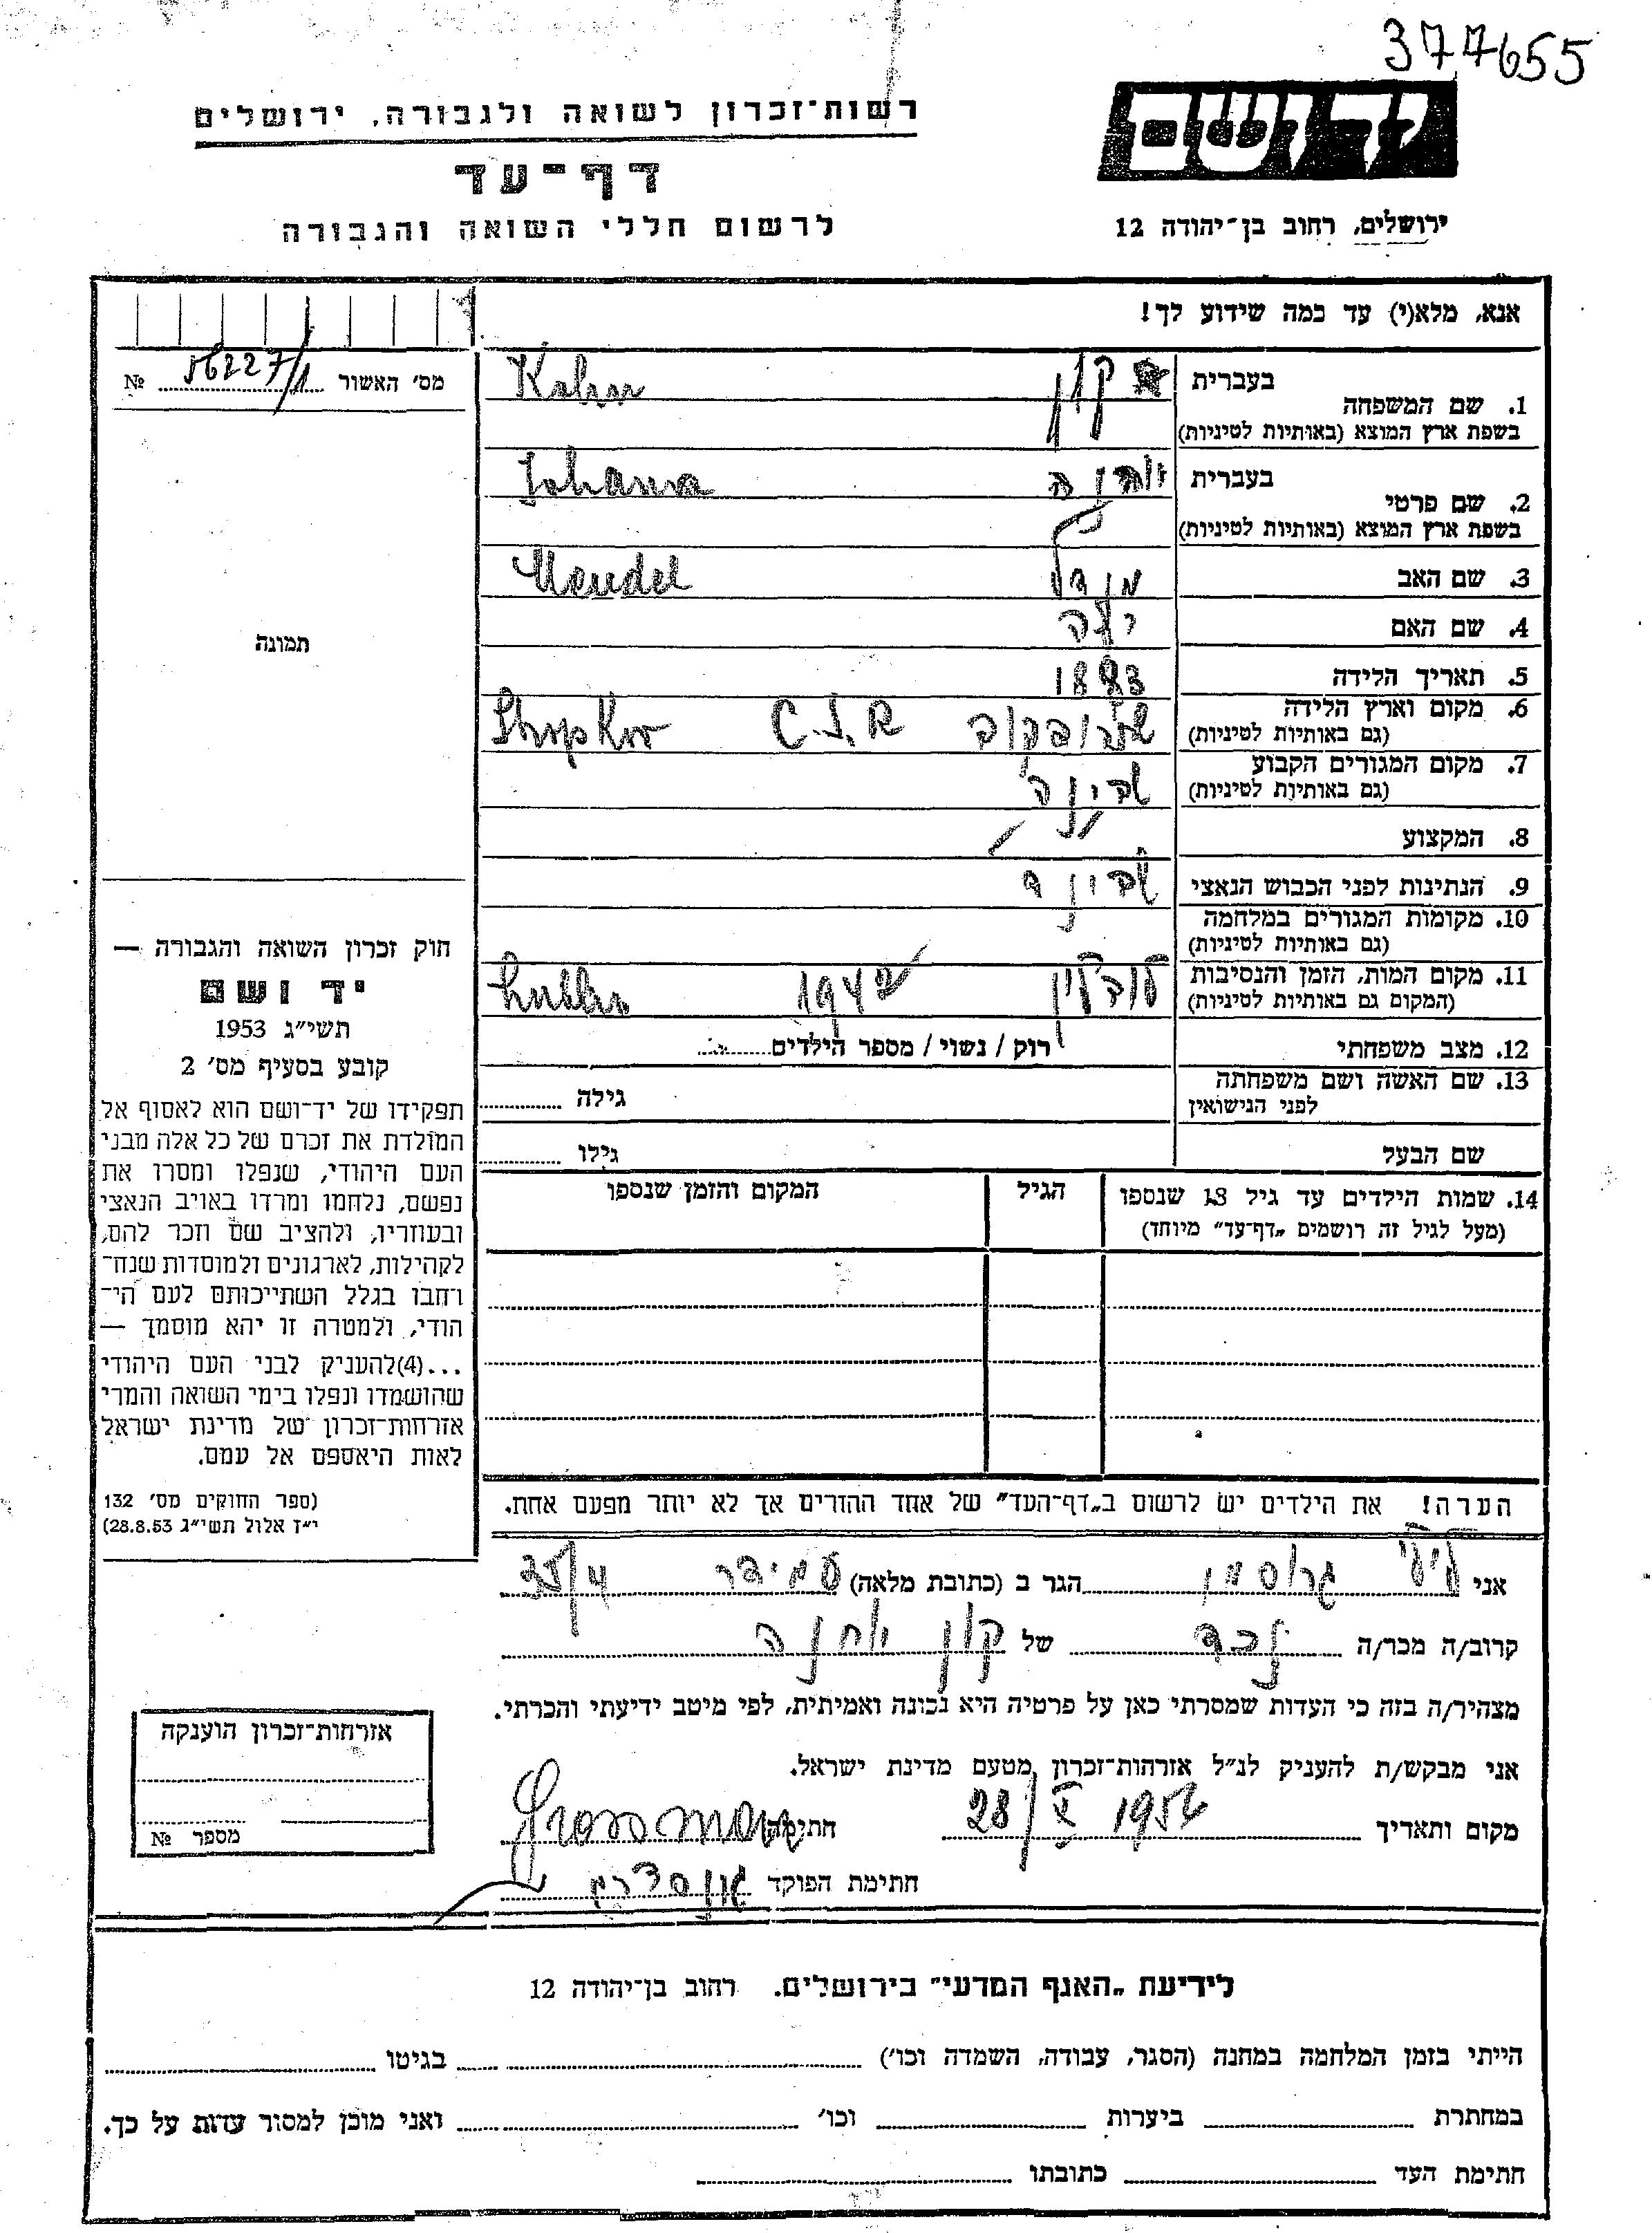 377655
רשות־זכרון לשואה ולגבורה, ירושלים
דף־עד
לרשום חללי השואה והגבורה
יד ושם
ירושלים, רחוב בן־יהודה 12
אנא, מלא(י) עד כמה שידוע לך!
מס׳ האשור № 56227/1
תמונה
בעברית קון Kohn
1. שם המשפחה
בשפת ארץ המוצא (באותיות לטיניות)
בעברית Johana
2. שם פרטי
בשפת ארץ המוצא (באותיות לטיניות)
3. שם האב מנדל Mendel
4. שם האם
5. תאריך הלידה 1883
6. מקום וארץ הלידה שטרופקוב C.S.R Stropkov
(גם באותיות לטיניות)
7. מקום המגורים הקבוע
(גם באותיות לטיניות)
8. המקצוע
9. הנתינות לפני הכבוש הנאצי
10. מקומות המגורים במלחמה
(גם באותיות לטיניות)
11. מקום המות, הזמן והנסיבות לובלין 1942 Lublin
(המקום גם באותיות לטיניות)
12. מצב משפחתי רוק / נשוי / מספר הילדים
13. שם האשה ושם משפחתה
לפני הנישואין גילה
שם הבעל גילו
14. שמות הילדים עד גיל 18 שנספו הגיל המקום והזמן שנספו
(מעל לגיל זה רושמים „דף־עד״ מיוחד)
הערה! את הילדים יש לרשום ב„דף־העד״ של אחד ההורים אך לא יותר מפעם אחת.
חוק זכרון השואה והגבורה —
יד ושם
תשי״ג 1953
קובע בסעיף מס׳ 2
תפקידו של יד־ושם הוא לאסוף אל
המולדת את זכרם של כל אלה מבני
העם היהודי, שנפלו ומסרו את
נפשם, נלחמו ומרדו באויב הנאצי
ובעוזריו, ולהציב שם וזכר להם,
לקהילות, לארגונים ולמוסדות שנח־
רבו בגלל השתייכותם לעם הי־
הודי, ולמטרה זו יהא מוסמך —
...(4)להעניק לבני העם היהודי
שהושמדו ונפלו בימי השואה והמרי
אזרחות־זכרון של מדינת ישראל
לאות היאספם אל עמם.
(ספר החוקים מס׳ 132
י״ז אלול תשי״ג 28.8.53)
אני לילי גרוסמן הגר ב (כתובת מלאה) עמידר 35/4
קרוב/ה מכר/ה נכד של קון יוחנה
מצהיר/ה בזה כי העדות שמסרתי כאן על פרטיה היא נכונה ואמיתית, לפי מיטב ידיעתי והכרתי.
אני מבקש/ת להעניק לנ״ל אזרחות־זכרון מטעם מדינת ישראל.
מקום ותאריך 28/X 1956 חתימה Grossman
חתימת הפוקד
אזרחות־זכרון הוענקה
מספר №
לידיעת „האגף המדעי״ בירושלים. רחוב בן־יהודה 12
הייתי בזמן המלחמה במחנה (הסגר, עבודה, השמדה וכו׳) בגיטו
במחתרת ביערות וכו׳ ואני מוכן למסור עדות על כך.
חתימת העד כתובתו